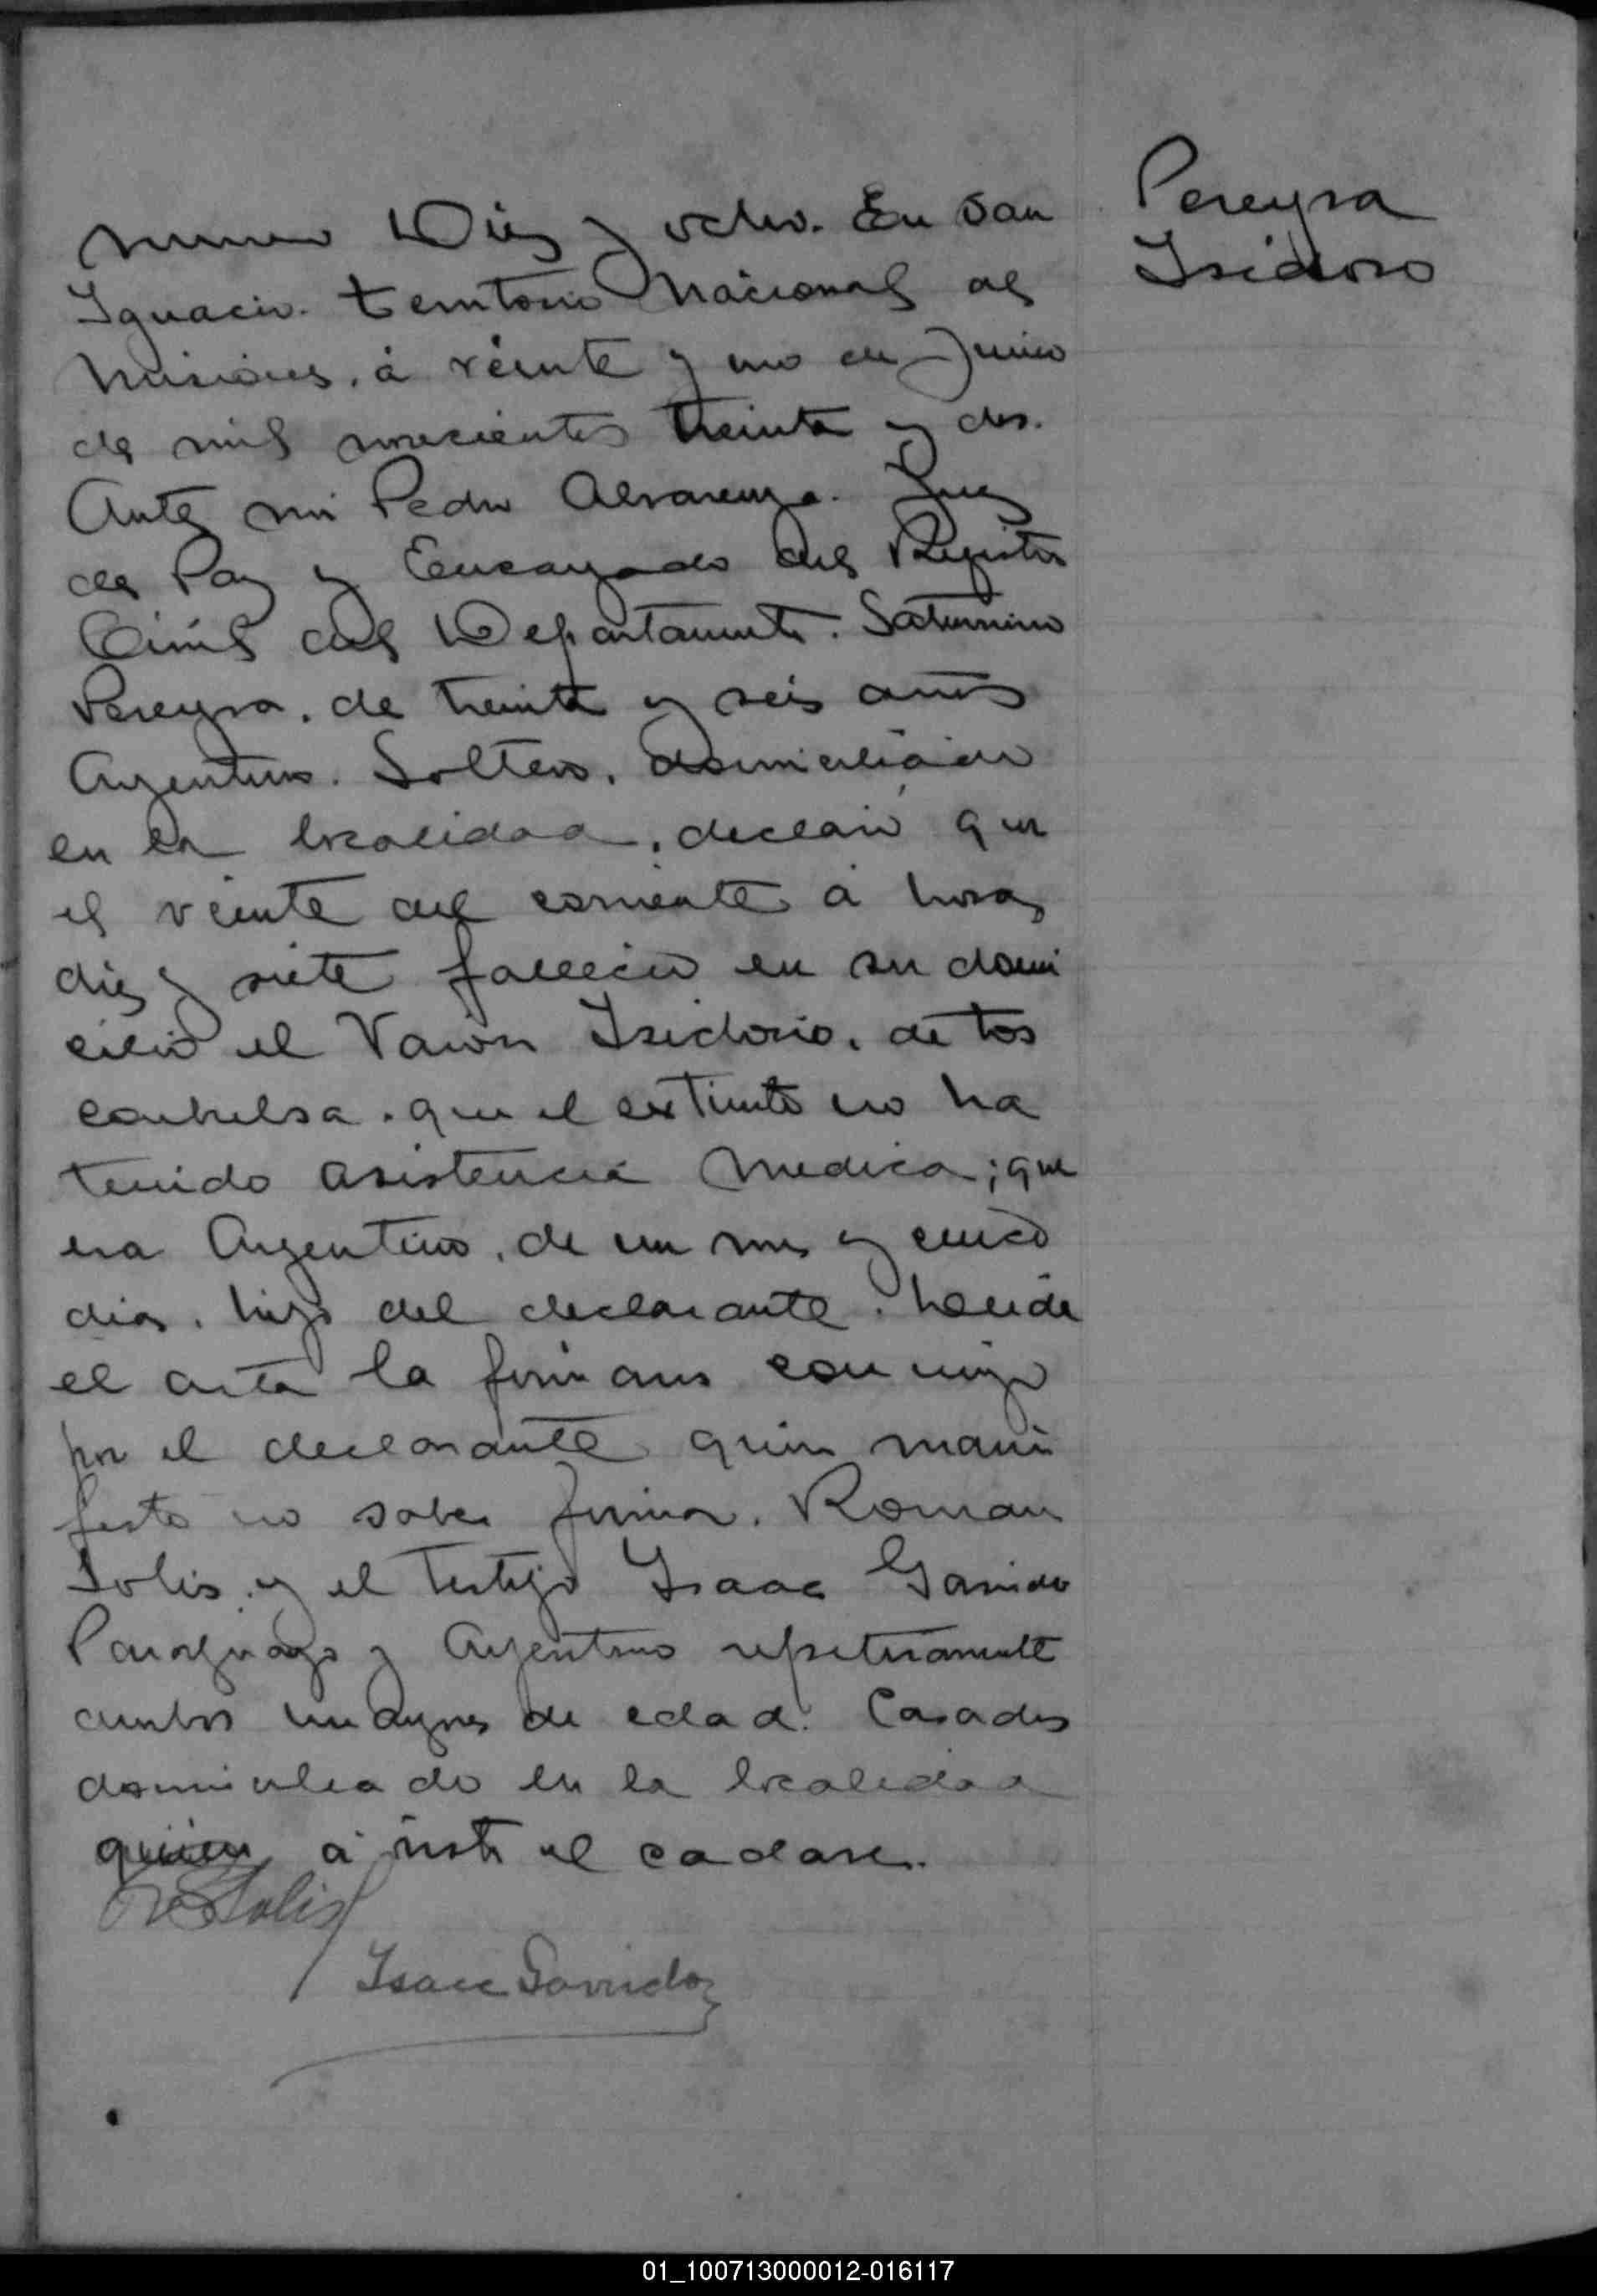 Pereyra
Isidoro
numero Diez y ocho. En San
Ignacio. territorio Nacional de
Misiones, á veinte y uno de Junio
de mil novecientos treinta y dos.
Ante mi Pedro Alvarenga. Juez
de Paz y Encargado del Registro
Civil del Departamento. Saturnino
Pereyra, de treinta y seis años
Argentino. Soltero, domiciliado
en la localidad, declaró que
el veinte del corriente á horas
diez y siete falleció en su domi
cilio el Varon Isidoro, de tos
conbulsa. que el extinto no ha
tenido asistencia medica; que
era Argentino, de un mes y cinco
dias, hijo del declarante. Leida
el acta la firman conmigo
por el declarante quien mani
festo no saber firmar. Roman
Solis y el testigo Isaac Garrido
Paraguayo y Argentino respetivamente
ambos mayores de edad. Casados
domiciliado en la localidad
quien á visto el cadaver.
Solis
Isaac Garrido
01_100713000012-016117